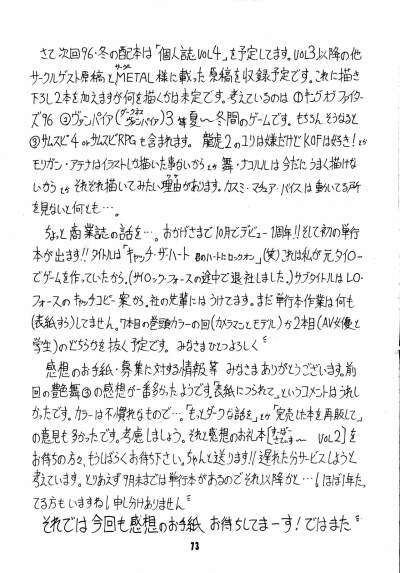 さて次回96・冬の配本は「個人誌VOL4」を予定してます。VOL3以降の他
サークルゲスト原稿とMETAL様に載った原稿を収録予定です。これに描き
下ろし2本を加えますが何を描くかは未定です。考えているのは①キングオブファイター
ズ'96 ②ヴァンパイア(ダークネス ヴァンパイア)3 等夏〜冬間のゲームです。もちろん そうなると
③サムスピ4 orサムスピRPGも含まれます。龍虎2のユリは嫌だけどKOFは好き!とか
モリガン・アテナはイラストしか描いた事ないからとか 舞・ナコルルは今だにうまく描けな
いからとか それぞれ描いてみたい理由があります。カスミ・マチュア・バイスは動いてる所
を見ないと何とも…。
ちょっと商業誌の話を…。おかげさまで10月でデビュー1周年!!そして初の単行
本が出ます!!タイトルは「キャッチ・ザ・ハート 君のハートにロックオン」(笑)これは私が元タイトー
でゲームを作っていたから。(サイロック・フォースの途中で退社しました。)サブタイトルはLO・
フォースのキャッチコピー案から。社の先輩にはうけてます。まだ単行本作業は何も
(表紙すら)してません。7本目の巻頭カラーの回(カメラマンとモデル)か2本目(AV女優と
学生)のどちらかを抜く予定です。みなさまひとつよろしく
感想のお手紙・募集に対する情報等 みなさまありがとうございます。前
回の艶舞③の感想が一番多かったようです。「表紙につられて」というコメントはうれし
かったです。カラーは不慣れなもので…。「もっとダークな話を」とか「完売した本を再販して」
の意見も多かったです。考慮しましょう。それと感想のお礼本[すーぱー VOL2]を
お待ちの方々、もうしばらくお待ち下さい。ちゃんと送ります!!遅れた分サービスしようと
考えています。とりあえず9月までは単行本があるのでそれ以降かと…!ほぼ1年た
てる方もいますね!申し分けありません
それでは今回も感想のお手紙 お待ちしてまーす!ではまた
73